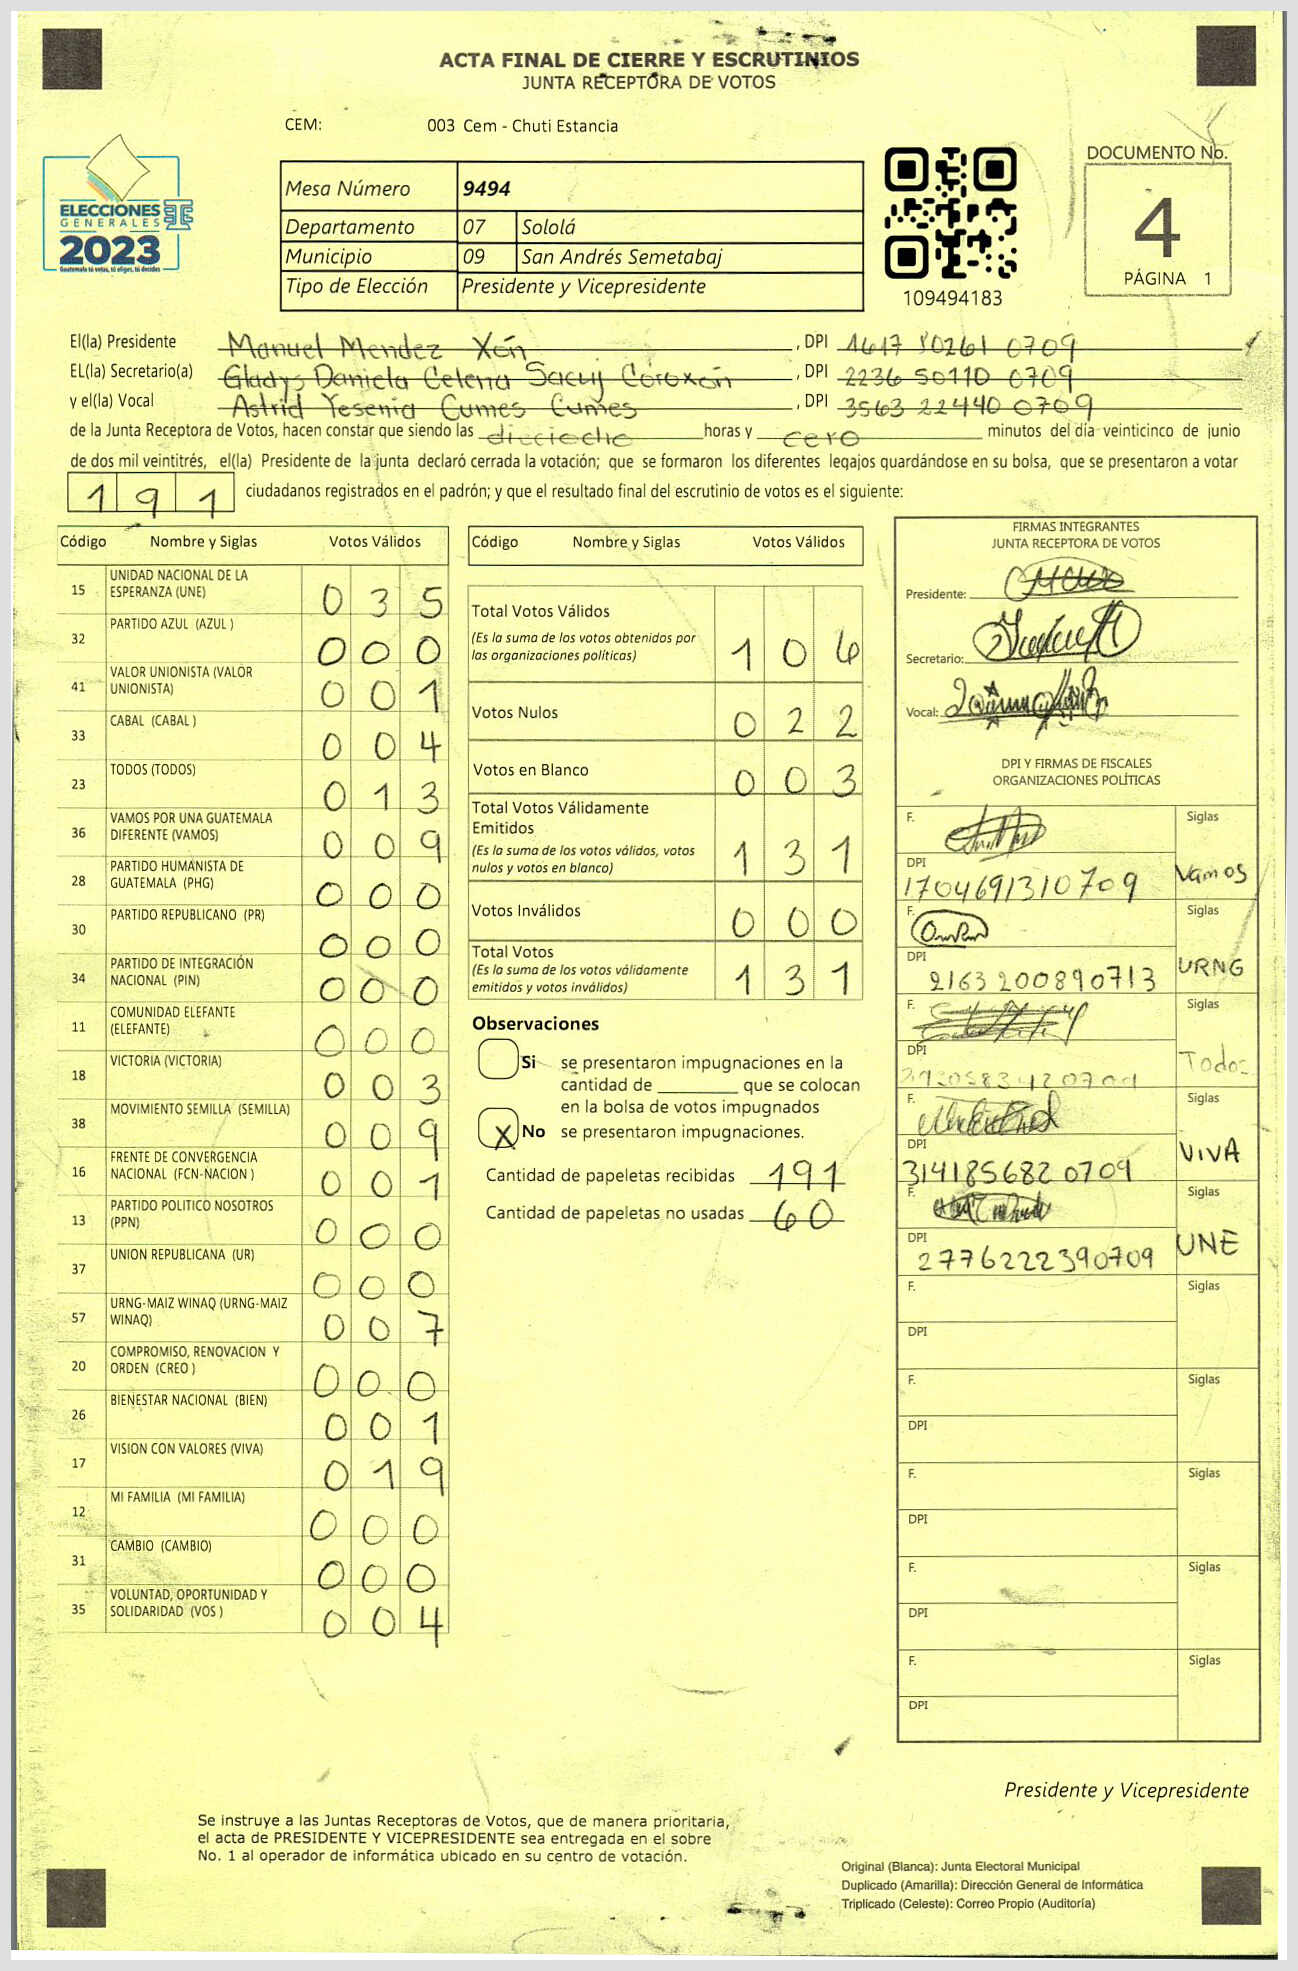 ACTA FINAL DE CIERRE Y ESCRUTINIOS
JUNTA RECEPTORA DE VOTOS
CEM: 003 Cem - Chuti Estancia
DOCUMENTO No.
4
PÁGINA 1
ELECCIONES
GENERALES
2023
Guatemala tú votas, tú eliges, tú decides
Mesa Número 9494
Departamento 07 Sololá
Municipio 09 San Andrés Semetabaj
Tipo de Elección Presidente y Vicepresidente
109494183
El(la) Presidente Manuel Mendez Xón , DPI 1617 80261 0709
EL(la) Secretario(a) Gladys Daniela Celena Sacuj Coroxón , DPI 2236 50110 0709
y el(la) Vocal Astrid Yesenia Cumes Cumes , DPI 3563 22440 0709
de la Junta Receptora de Votos, hacen constar que siendo las dieciocho horas y cero minutos del día veinticinco de junio
de dos mil veintitrés, el(la) Presidente de la junta declaró cerrada la votación; que se formaron los diferentes legajos guardándose en su bolsa, que se presentaron a votar
191 ciudadanos registrados en el padrón; y que el resultado final del escrutinio de votos es el siguiente:
Código Nombre y Siglas Votos Válidos
15 UNIDAD NACIONAL DE LA ESPERANZA (UNE) 035
32 PARTIDO AZUL (AZUL ) 000
41 VALOR UNIONISTA (VALOR UNIONISTA) 001
33 CABAL (CABAL ) 004
23 TODOS (TODOS) 013
36 VAMOS POR UNA GUATEMALA DIFERENTE (VAMOS) 009
28 PARTIDO HUMANISTA DE GUATEMALA (PHG) 000
30 PARTIDO REPUBLICANO (PR) 000
34 PARTIDO DE INTEGRACIÓN NACIONAL (PIN) 000
11 COMUNIDAD ELEFANTE (ELEFANTE) 000
18 VICTORIA (VICTORIA) 003
38 MOVIMIENTO SEMILLA (SEMILLA) 009
16 FRENTE DE CONVERGENCIA NACIONAL (FCN-NACION ) 001
13 PARTIDO POLITICO NOSOTROS (PPN) 000
37 UNION REPUBLICANA (UR) 000
57 URNG-MAIZ WINAQ (URNG-MAIZ WINAQ) 007
20 COMPROMISO, RENOVACION Y ORDEN (CREO ) 000
26 BIENESTAR NACIONAL (BIEN) 001
17 VISION CON VALORES (VIVA) 019
12 MI FAMILIA (MI FAMILIA) 000
31 CAMBIO (CAMBIO) 000
35 VOLUNTAD, OPORTUNIDAD Y SOLIDARIDAD (VOS ) 004
Código Nombre y Siglas Votos Válidos
Total Votos Válidos 106
(Es la suma de los votos obtenidos por
las organizaciones políticas)
Votos Nulos 022
Votos en Blanco 003
Total Votos Válidamente
Emitidos 131
(Es la suma de los votos válidos, votos
nulos y votos en blanco)
Votos Inválidos 000
Total Votos 131
(Es la suma de los votos válidamente
emitidos y votos inválidos)
Observaciones
Si se presentaron impugnaciones en la
cantidad de ________ que se colocan
en la bolsa de votos impugnados
X No se presentaron impugnaciones.
Cantidad de papeletas recibidas 191
Cantidad de papeletas no usadas 60
FIRMAS INTEGRANTES
JUNTA RECEPTORA DE VOTOS
Presidente:
Secretario:
Vocal:
DPI Y FIRMAS DE FISCALES
ORGANIZACIONES POLÍTICAS
F. Siglas
DPI 1704691310709 Vamos
F. Siglas
DPI 2163200890713 URNG
F. Siglas
DPI Todos
F. Siglas
DPI 3141856820709 VIVA
F. Siglas
DPI 2776222390709 UNE
F. Siglas
DPI
F. Siglas
DPI
F. Siglas
DPI
F. Siglas
DPI
F. Siglas
DPI
Presidente y Vicepresidente
Se instruye a las Juntas Receptoras de Votos, que de manera prioritaria,
el acta de PRESIDENTE Y VICEPRESIDENTE sea entregada en el sobre
No. 1 al operador de informática ubicado en su centro de votación.
Original (Blanca): Junta Electoral Municipal
Duplicado (Amarilla): Dirección General de Informática
Triplicado (Celeste): Correo Propio (Auditoría)